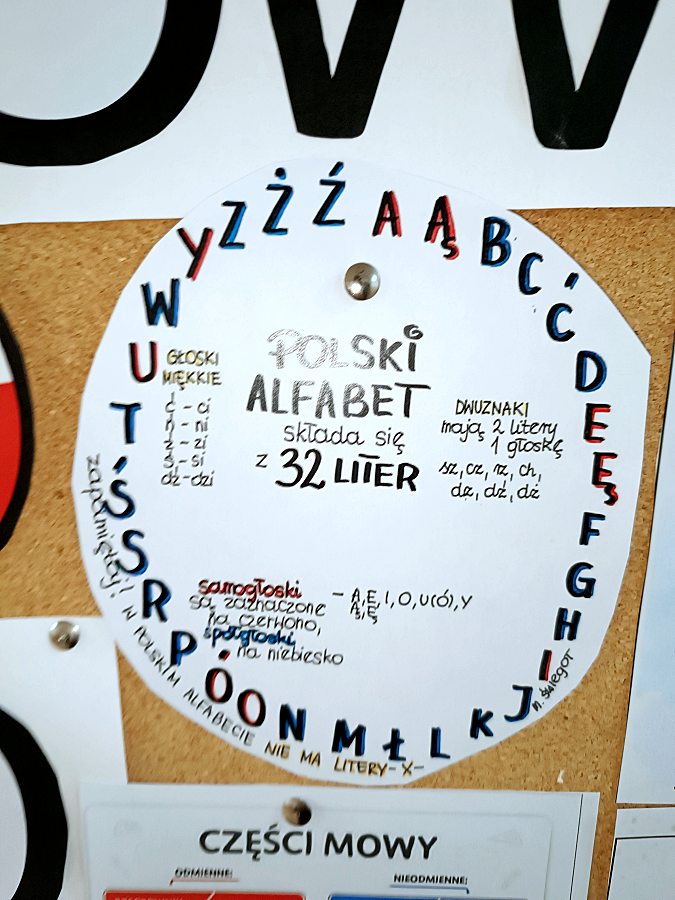 A Ą B C Ć D E Ę F G H I J K L Ł M N O Ó P R S Ś T U W Y Z Ż Ź
POLSKI
ALFABET
składa się
z 32 LITER
GŁOSKI
MIĘKKIE
ć - ci
ń - ni
ź - zi
ś - si
dź - dzi
DWUZNAKI
mają 2 litery
1 głoskę
sz, cz, rz, ch,
dz, dź, dż
samogłoski - A, E, I, O, U(Ó), Y
Ą, Ę
są zaznaczone
na czerwono,
spółgłoski
na niebiesko
zapamiętaj! W POLSKIM ALFABECIE NIE MA LITERY -X-
N. ŚWIEGOT
CZĘŚCI MOWY
ODMIENNE:
NIEODMIENNE: